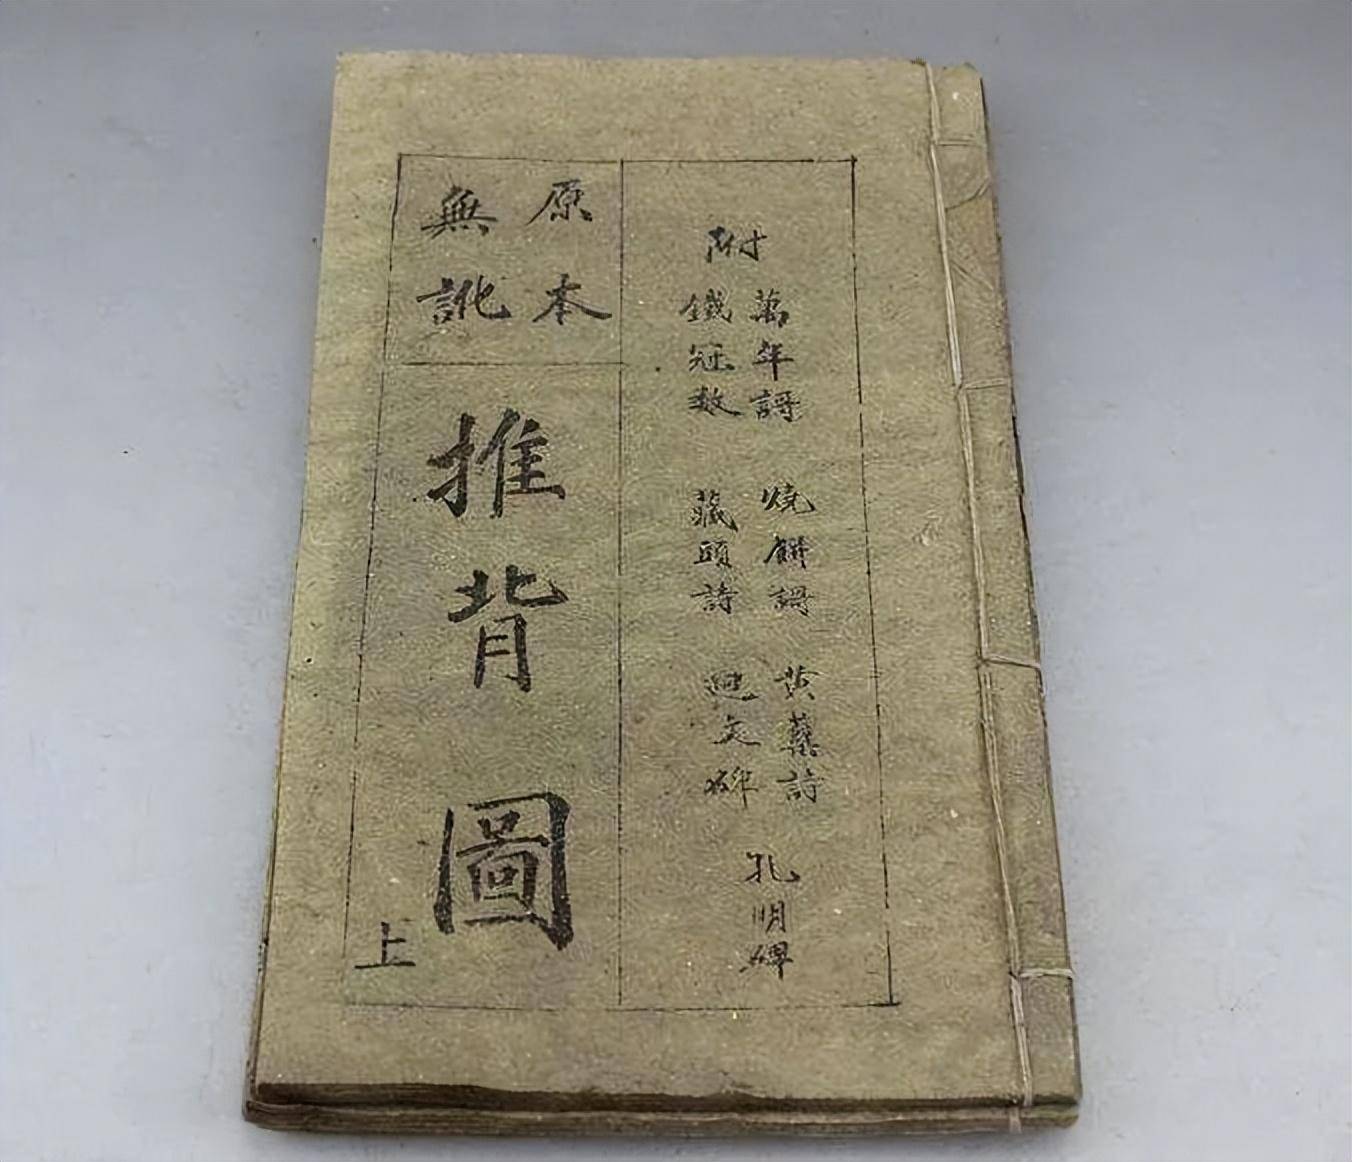 附
萬年謌 烧餅謌 黄蘗詩 孔明碑
鐵冠数 藏頭詩 迴文碑
原本
無訛
推背圖
上